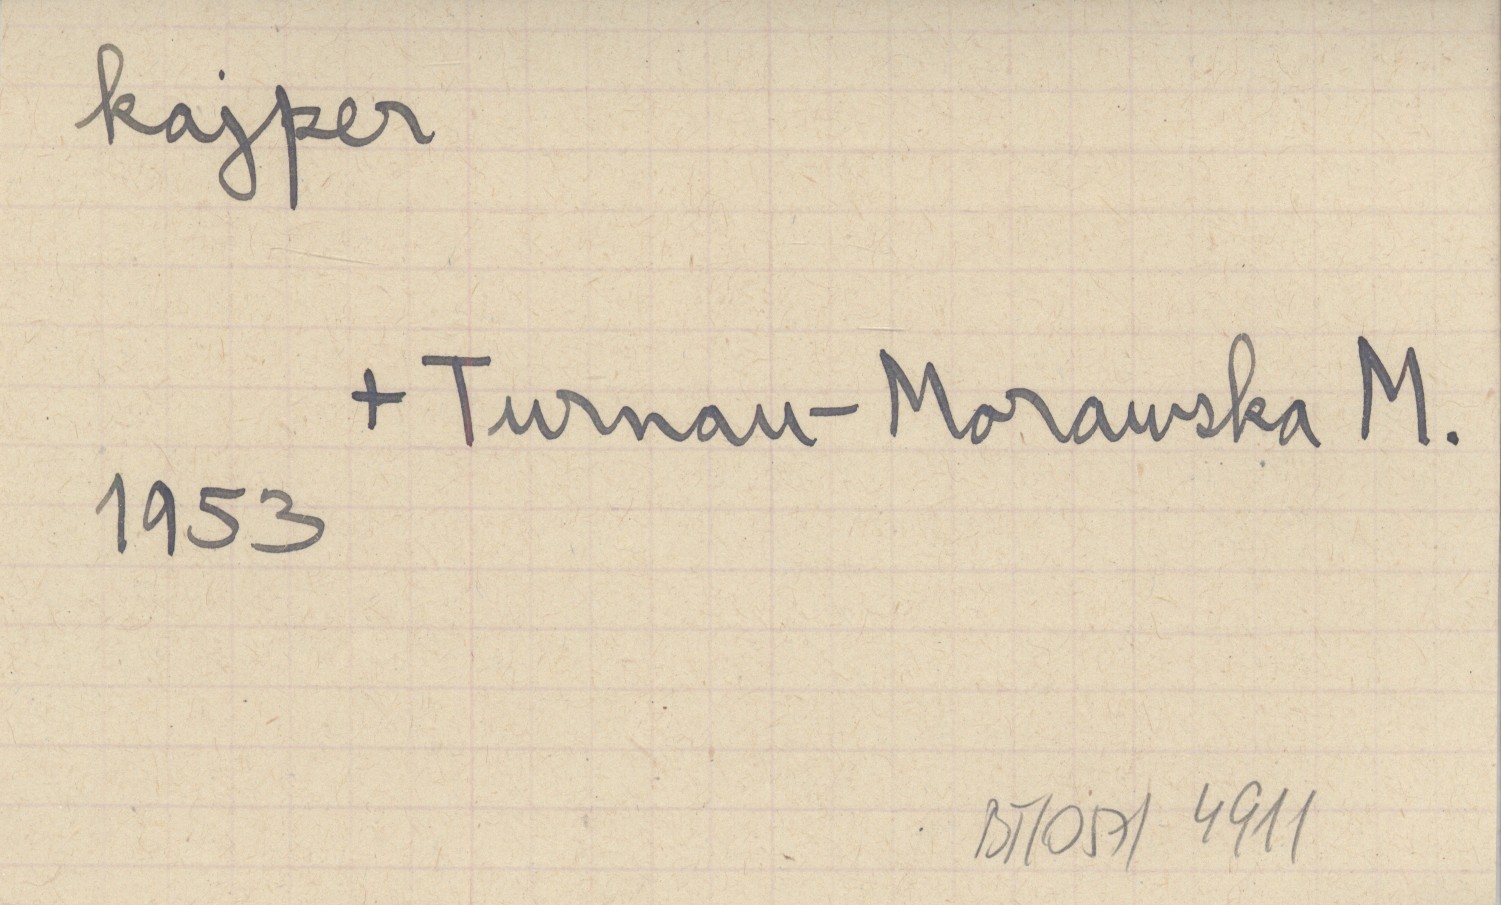 kajper
+ Turnau-Morawska M.
1953
BT/057/ 4911